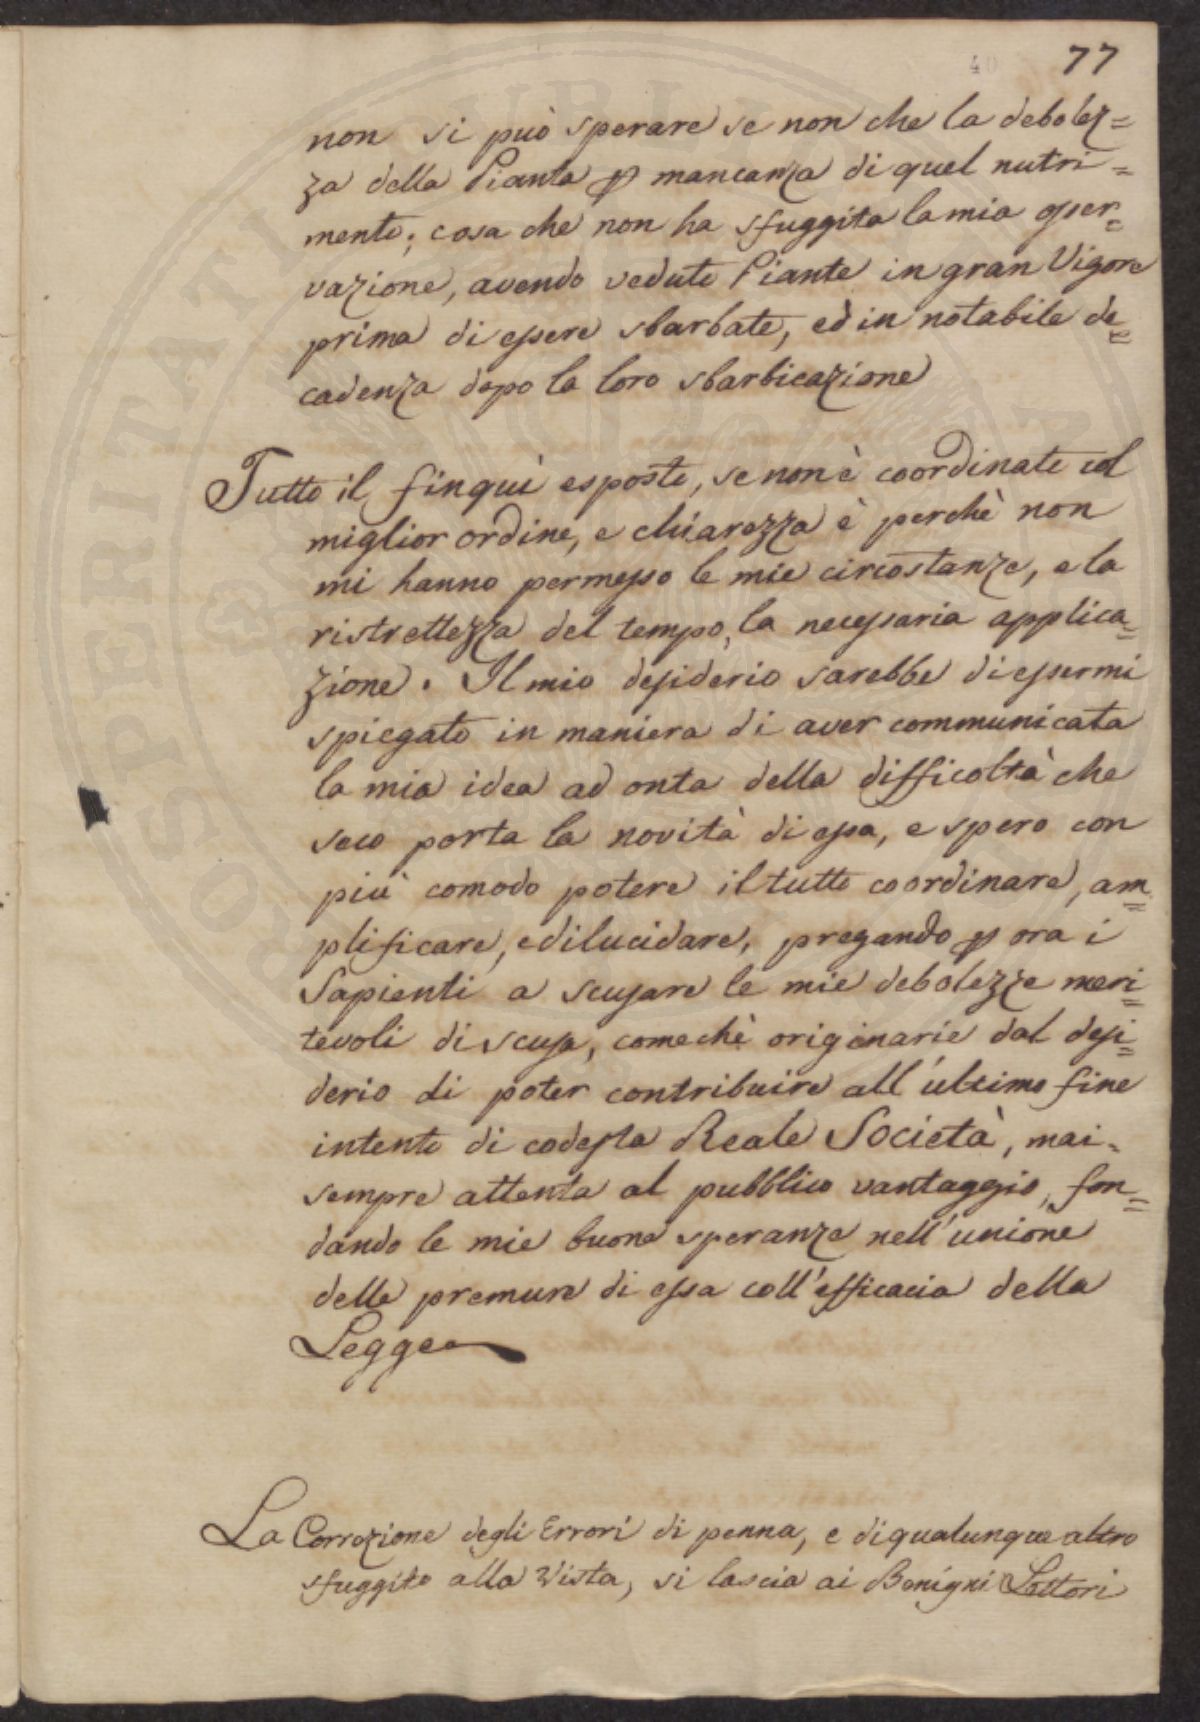 40 77
non si può sperare se non che la debolez=
za della Pianta ꝑ mancanza di quel nutri=
mento; cosa che non ha sfuggita la mia osser=
vazione, avendo vedute Piante in gran Vigore
prima di essere sbarbate, ed in notabile de=
cadenza dopo la loro sbarbicazione
Tutto il finquì esposto, se non è coordinato col
miglior ordine, e chiarezza è perchè non
mi hanno permesso le mie circostanze, e la
ristrettezza del tempo, la necessaria applica=
zione. Il mio desiderio sarebbe di essermi
spiegato in maniera di aver communicata
la mia idea ad onta della difficoltà che
seco porta la novità di essa, e spero con
più comodo potere il tutto coordinare, am=
plificare, e dilucidare, pregando ꝑ ora i
Sapienti a scusare le mie debolezze meri=
tevoli di scusa, comechè originarie dal desi=
derio di poter contribuire all'ultimo fine
intento di codesta Reale Società, mai=
sempre attenta al pubblico vantaggio, fon=
dando le mie buone speranze nell'unione
delle premure di essa coll'efficacia della
Legge
La Correzione degli Errori di penna, e di qualunque altro
sfuggito alla Vista, si lascia ai Benigni Lettori
PROSPERITATI PUBLICAE